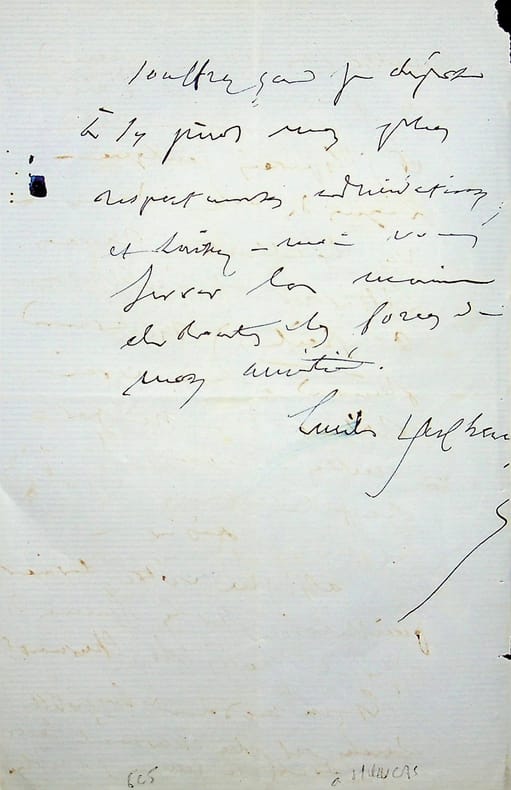 Souffrez que je dépose
à ses pieds mes plus
respectueuses admirations,
et laissez-moi vous
serrer les mains
de toutes les forces de
mon amitié.
Emile
605
à